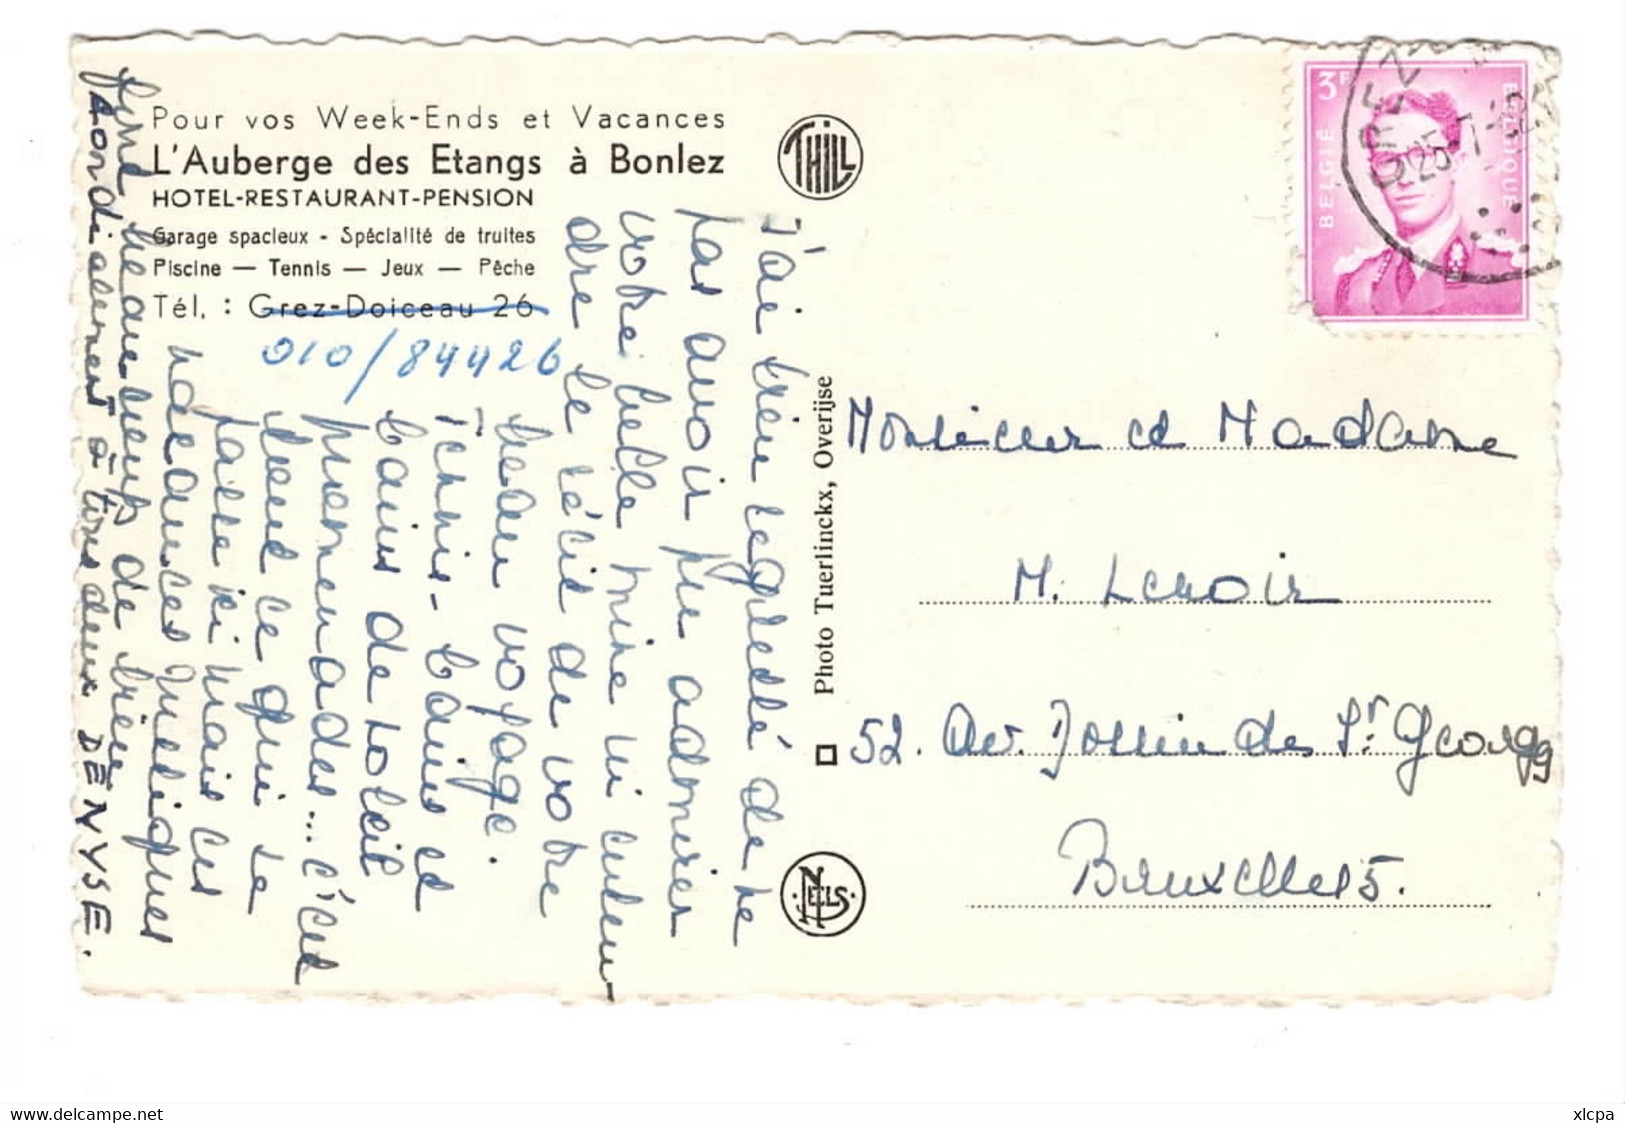 Pour vos Week-Ends et Vacances
L'Auberge des Etangs à Bonlez
HOTEL-RESTAURANT-PENSION
Garage spacieux - Spécialité de truites
Piscine — Tennis — Jeux — Pêche
Tél. : Grez-Doiceau 26
010/84426
THILL
3F
BELGIË
BELGIQUE
GREZ
25-7
J'ai bien regretté de ne
pas avoir pu admirer
votre belle mine ni enten-
dre le récit de votre
beau voyage.
Tennis - bains et
bains de soleil
promenades... c'est
tout ce qui se
passe ici mais ces
vacances
me beaucoup de bien
Cordialement à tous deux. DENYSE.
Photo Tuerlinckx, Overijse
NELS
Monsieur et Madame
M. Lenoir
52. Av. des St Georges
Bruxelles 5.
www.delcampe.net
xlcpa